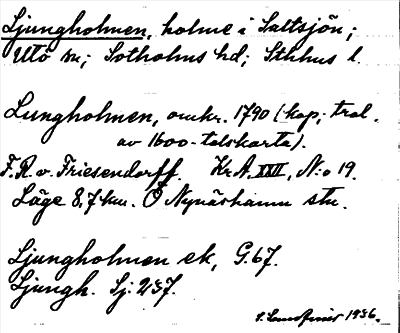 Ljungholmen, holme i Saltsjön;
Utö sn; Sotholms hd; Sthlms l.
Lungholmen, omkr. 1790 (kop; trol.
av 1600-talskarta).
F. R. v. Friesendorff. Kr A. XXII, N:o 19.
Läge 8,7 km. Ö Nynäshamn stn.
Ljungholmen ek, G. 67.
Ljungh. Sj. 237.
1936.